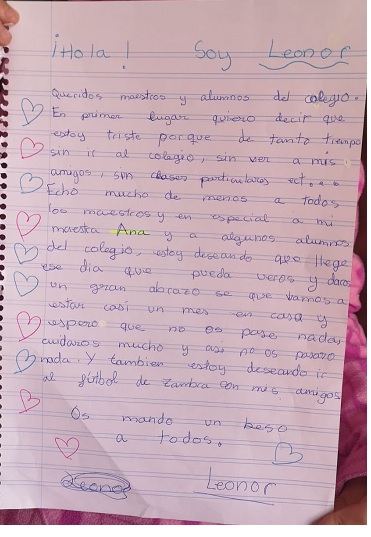 ¡Hola! Soy Leonor
Queridos maestros y alumnos del colegio.
En primer lugar quiero decir que
estoy triste porque de tanto tiempo
sin ir al colegio, sin ver a mis
amigos, sin clases particulares ect...
Echo mucho de menos a todos
los maestros y en especial a mi
maestra Ana y a algunos alumnos
del colegio, estoy deseando que llege
ese dia que pueda veros y daros
un gran abrazo se que vamos a
estar casi un mes en casa y
espero que no os pase nada,
cuidaros mucho y asi no os pasara
nada. Y tambien estoy deseando ir
al fútbol de Zambra con mis amigos
Os mando un beso
a todos.
Leonor Leonor